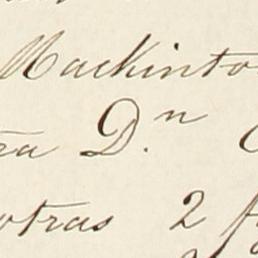 Mackinto
ra D.n
otras 2